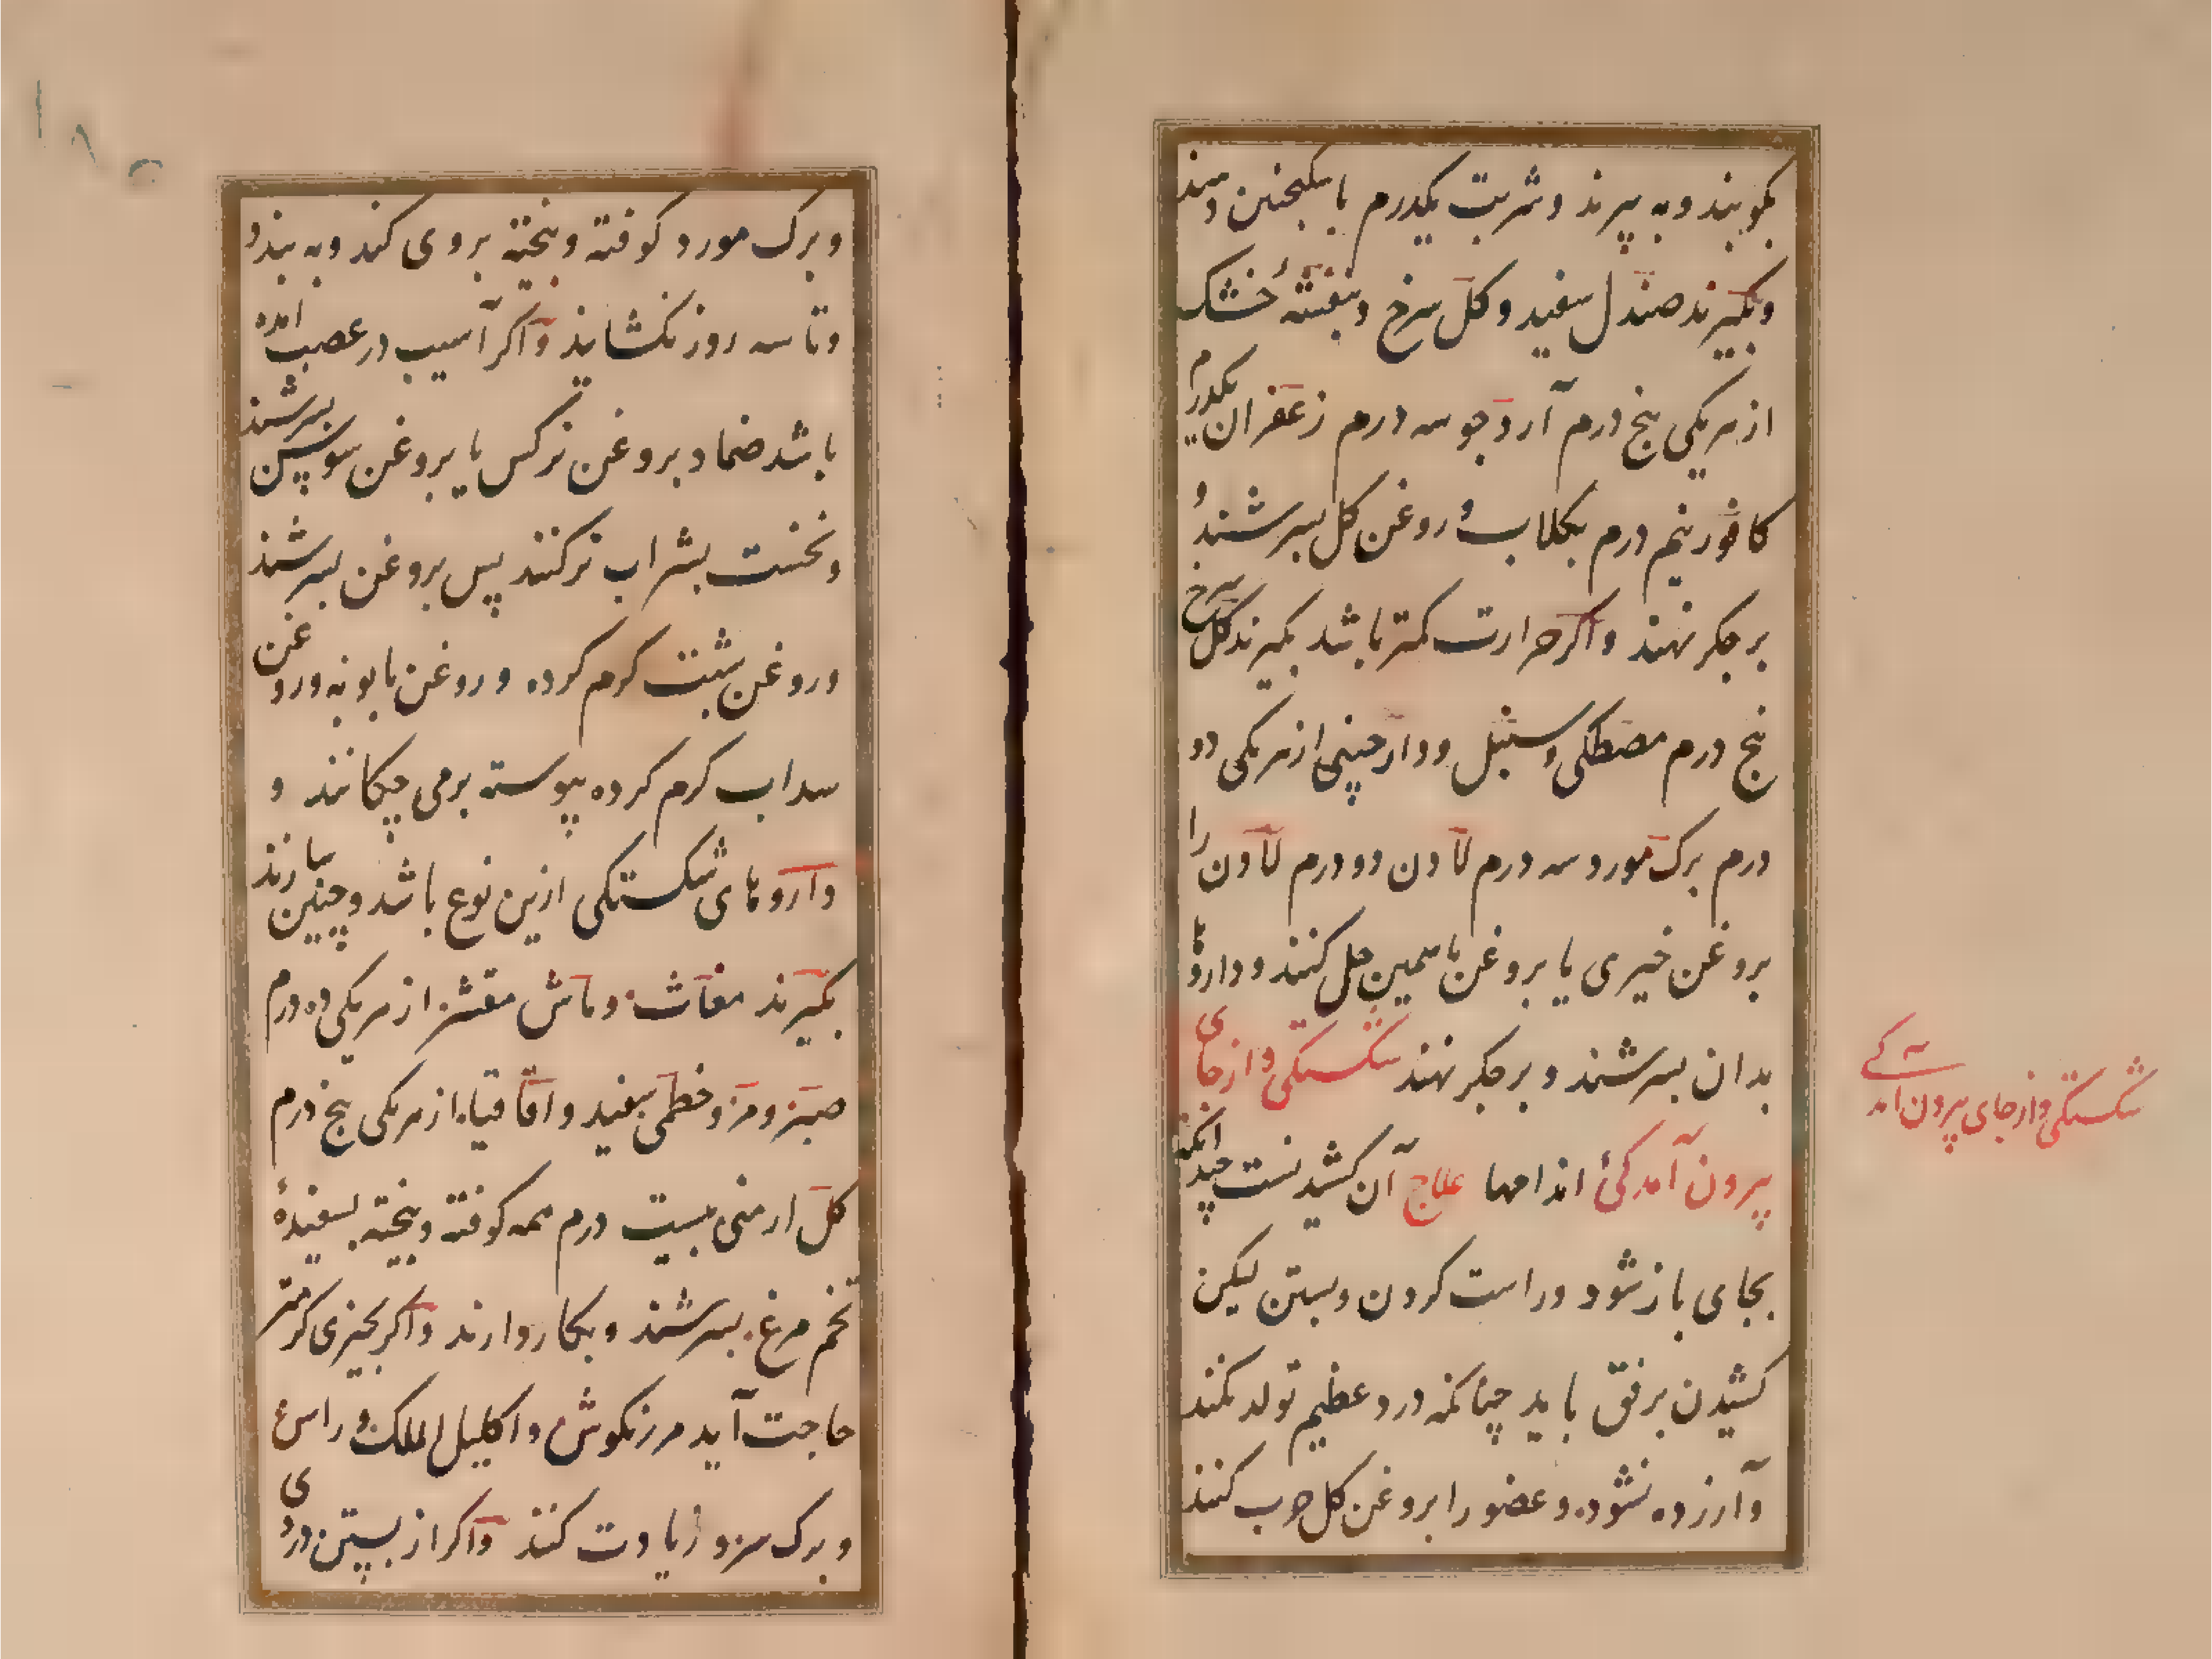 بکوبند و به پیزند و شربت یکدرم با سکنجبین دهند
و بگیرند صندل سفید و کل سرخ و بنفشهٔ خشک
از هر یکی پنج درم آرد جو سه درم زعفران یکدرم
کافور نیم درم بکلاب و روغن کل بسرشند و
بر جکر نهند و اکر حرارت کمتر باشد بکیرند کل سرخ
پنج درم مصطکی و سنبل و دارچینی از هر یکی دو
درم برک مورد سه درم لادن دو درم لادن را
بروغن خیری یا بروغن یاسمین حل کنند و داروها
بدان بسرشند و بر جکر نهند شکستکی و از جای
بیرون آمدکیٔ اندامها علاج آن کشیدنست چندانکه
بجای باز شود و راست کردن و بستن لیکن
کشیدن برفق باید چنانکه درد عظیم تولد نکند
و آزرده نشود و عضو را بروغن کل چرب کنند
شکستکی و از جای بیرون آمدکی
۱۸۰
و برک مورد کوفته و پخته بروی کنند و به بندند
و تا سه روز نکشایند و اکر آسیب در عصب آمده
باشد ضماد بروغن نرکس یا بروغن سوسن بسرشند
و نخست بشراب تر کنند پس بروغن بسرشند
و روغن شبت کرم کرده و روغن بابونه و روغن
سداب کرم کرده پیوسته برمی چکانند و
داروهای شکستکی ازین نوع باشد و چنین سازند
بکیرند مغاث و ماش مقشر از هر یکی ده درم
صبر و مر و خطمی سفید و اقاقیا از هر یکی پنج درم
کل ارمنی بیست درم همه کوفته و پخته بسفیدهٔ
تخم مرغ بسرشند و بکار دارند و اکر بچیزی کرمتر
حاجت آید مرزنکوش و اکلیل الملک و راسن
و برک سرو زیادت کنند و اکر از بستن دردی